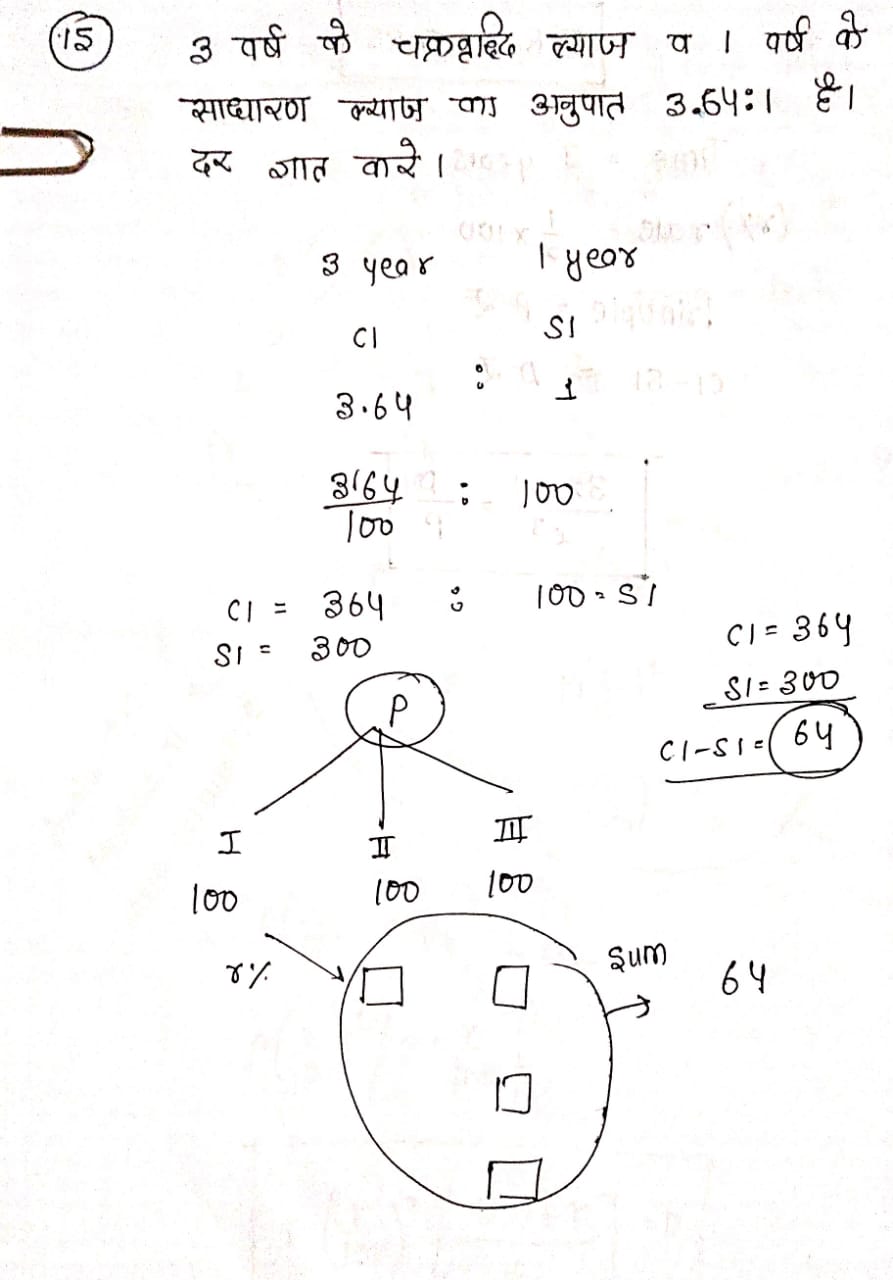 15 3 वर्ष के चक्रवृद्दि ब्याज व 1 वर्ष के
साधारण ब्याज का अनुपात 3.64:1 है।
दर ज्ञात करे।
3 year 1 year
CI SI
3.64 : 1
364/100 : 100
CI = 364 : 100 = SI
SI = 300
CI = 364
SI = 300
CI-SI = 64
P
I II III
100 100 100
r% Sum 64